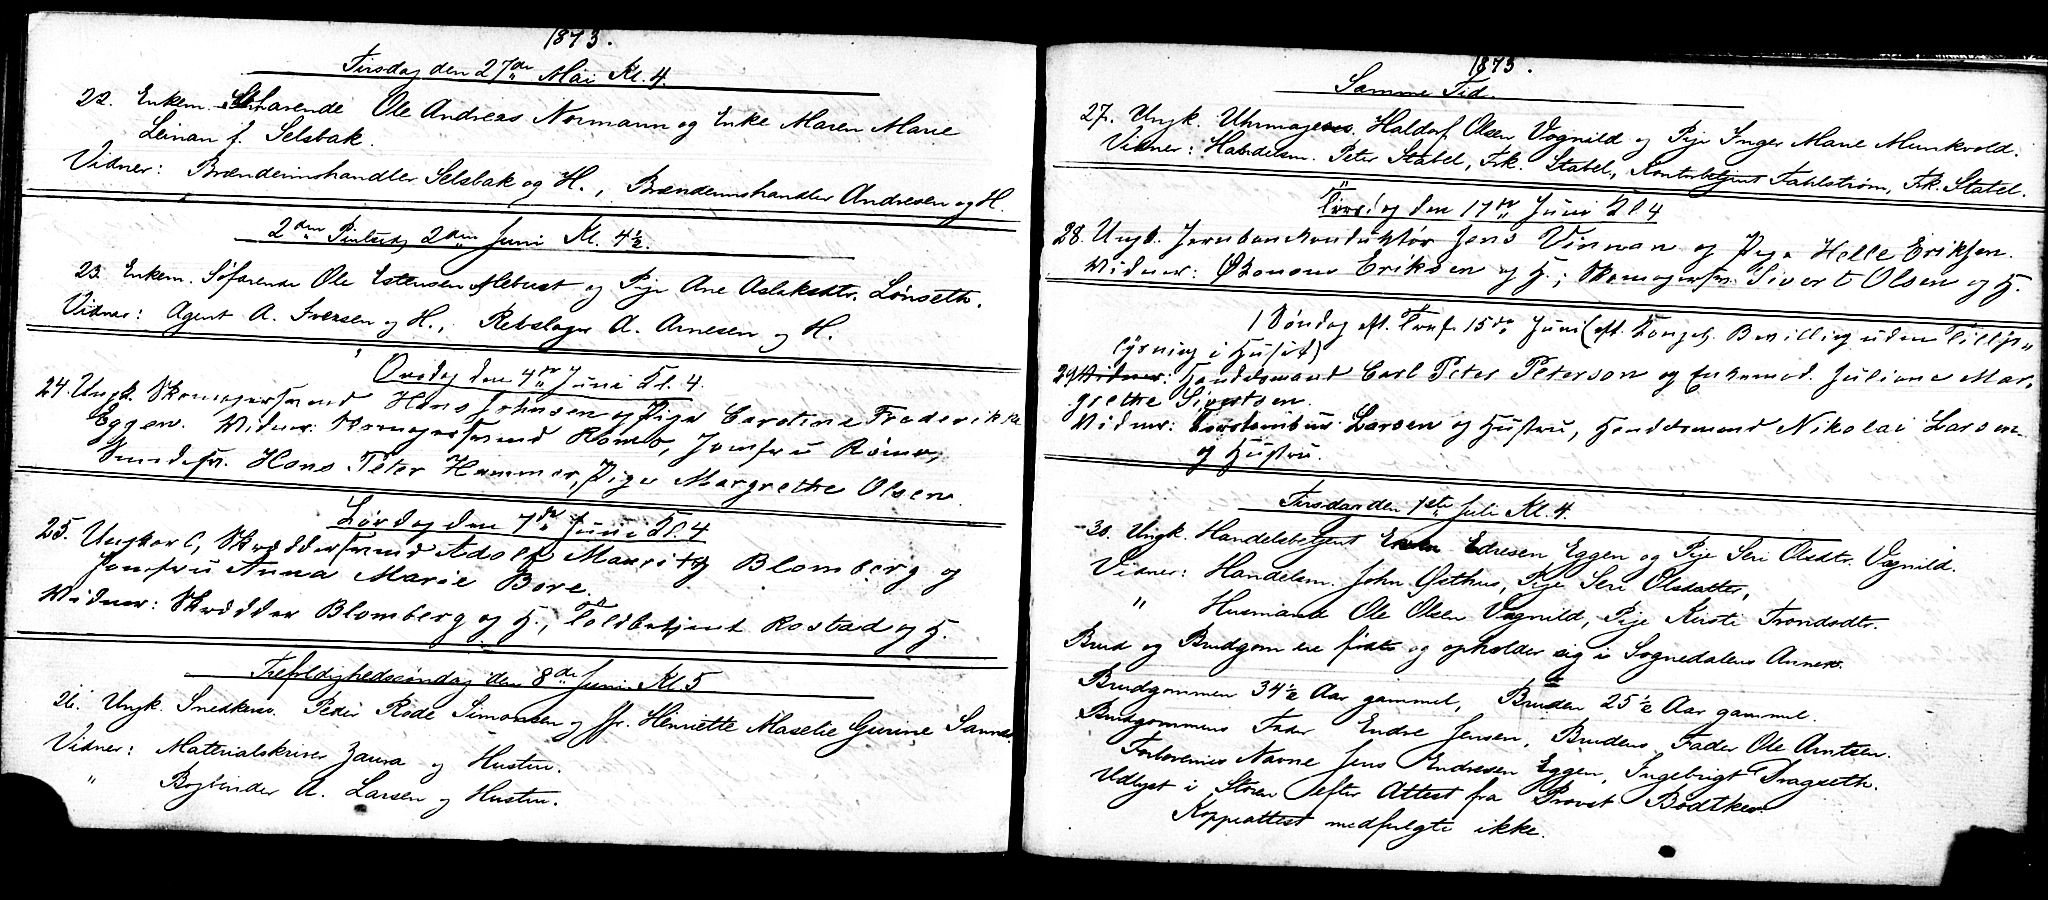 1873.
Tirsdag den 27de Mai Kl. 4.
22. Enkem. Søfarende Ole Andreas Normann og Enke Maren Marie
Leinan f. Selsbak.
Vidner: Brændeviinshandler Selsbak og H., Brændeviinshandler Andresen og H.
2den Pintsedag 2den Juni Kl. 4½.
23. Enkem. Søfarende Ole Estensen Mebust og Pige Ane Aslaksdtr. Lønseth.
Vidner: Agent A. Iversen og H., Rebslager A. Arnesen og H.
Onsdag den 4de Juni Kl. 4.
24. Ungk. Skomagersvend Hans Johnsen og Pige Caroline Frederikke
Eggen. Vidner: Skomagersvend Rømo, Jomfru Rømo,
Smedesv. Hans Peter Hammer, Pige Margrethe Olsen.
Lørdag den 7de Juni Kl. 4
25. Ungkarl, Skræddersvend Adolf Mauritz Blomberg og
Jomfru Anna Marie Bore.
Vidner: Skrædder Blomberg og H., Toldbetjent Rostad og H.
Trefoldighedssøndag den 8de Juni Kl. 5
26. Ungk. Snedkersv. Peder Rode Simonsen og Jfr. Henriette Maselie Gurine Sannes.
Vidner: Materialskriver Zaura og Hustru.
" Bogbinder A. Larsen og Hustru.
1873.
Samme Tid.
27. Ungk. Uhrmagersv. Haldorf Olsen Vognild og Pige Inger Marie Munkvold.
Vidner: Handelsm. Peter Stabel, Frk. Stabel, Kontorbetjent Fahlstrøm, Frk. Stabel.
Tirsdag den 17de Juni Kl 4
28. Ungk. Jernbanekonduktør Jens Vinnan og Pige Helle Eriksen.
Vidner: Økonom Eriksen og H.; Skomagersv. Sivert Olsen og H.
1 Søndag eft. Tref. 15de Juni (eft. Kongel. Bevilling uden Tillys-
lysning i Huset)
29. Vidner: Handelsmand Carl Peter Peterson og Enkemad. Juliane Mar-
grethe Sivertsen.
Vidner: Larsen og Hustru, Handelsmand Nikolai Larsen
og Hustru.
Tirsdag den 1ste Juli Kl. 4.
30. Ungk. Handelsbetjent Edresen Eggen og Pige Seri Olsdtr. Vognild.
Vidner: Handelsm. John Østhus, Pige Seri Olsdatter,
" Husmand Ole Olsen Vognild, Pige Kirsti Trondsdtr.
Brud og Brudgom ere fødte og opholder sig i Sognedalens Annex.
Brudgommen 34½ Aar gammel, Bruden 25½ Aar gammel.
Brudgommens Fader Endre Jensen, Brudens Fader Ole Arntsen.
Forlovernes Navne Jens Endresen Eggen, Ingebrigt Dragseth.
Udlyst i Støren efter Attest fra Provst Bødtker.
Koppeattest medfulgte ikke.